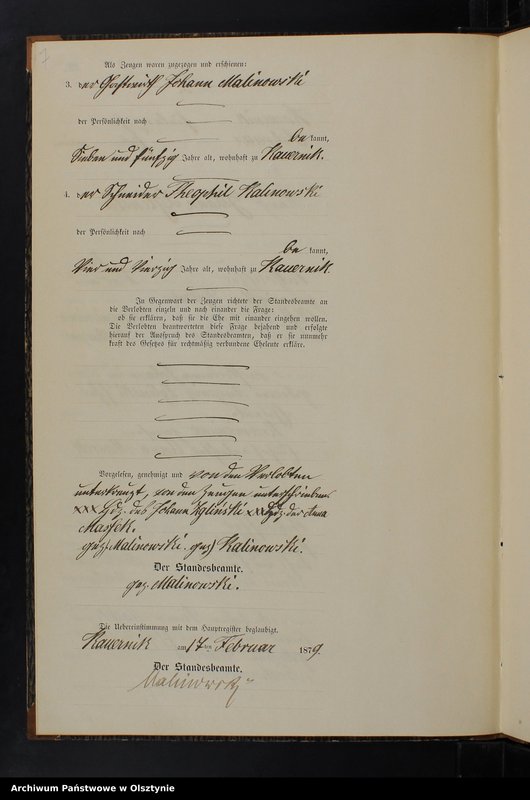 Als Zeugen waren zugezogen und erschienen:
3. der Gastwirth Johann Malinowski
der Persönlichkeit nach
bekannt,
Sieben und fünfzig Jahre alt, wohnhaft zu Kauernik.
4. der Schneider Theophil Kalinowski
der Persönlichkeit nach
bekannt,
Vier und Vierzig Jahre alt, wohnhaft zu Kauernik
In Gegenwart der Zeugen richtete der Standesbeamte an
die Verlobten einzeln und nach einander die Frage:
ob sie erklären, daß sie die Ehe mit einander eingehen wollen.
Die Verlobten beantworteten diese Frage bejahend und erfolgte
hierauf der Ausspruch des Standesbeamten, daß er sie nunmehr
kraft des Gesetzes für rechtmäßig verbundene Eheleute erkläre.
Vorgelesen, genehmigt und von den Verlobten
unterkreuzt, von den Zeugen unterschrieben.
XXX Hdz. des Johann XXX Hdz. der Anna
gez. Malinowski. gez) Kalinowski.
Der Standesbeamte.
gez. Malinowski.
Die Uebereinstimmung mit dem Hauptregister beglaubigt.
Kauernik am 17ten Februar 1879.
Der Standesbeamte.
Malinowski
Archiwum Państwowe w Olsztynie